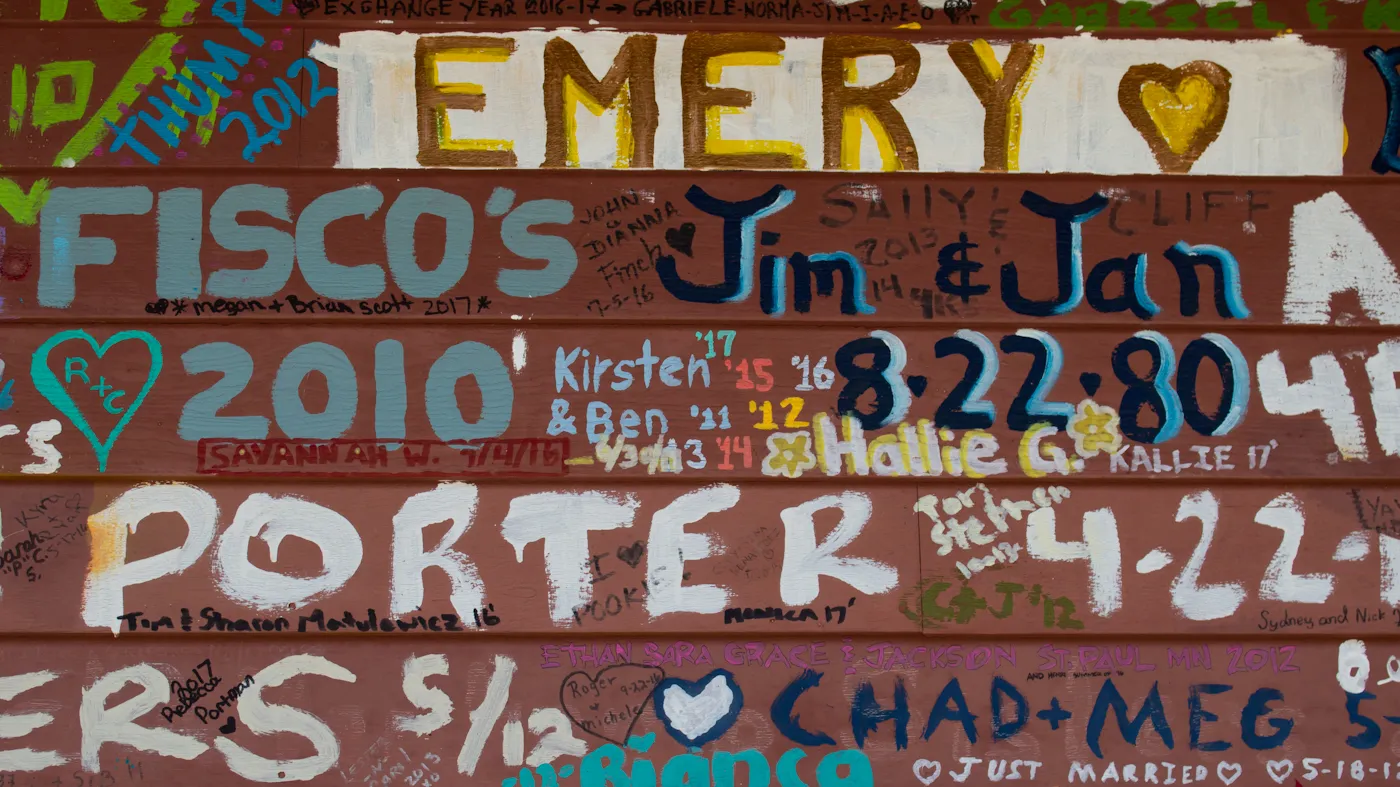 EXCHANGE YEAR 2016-17 → GABRIELE-NORMA-JIM-I-A-E-O
10/
2012
EMERY
FISCO'S
JOHN
&
DIANNA
Finch
7-5-16
SALLY & CLIFF
2013
14 yrs
Jim & Jan
A
* megan + Brian Scott 2017 *
R+C
2010
Kirsten '17 '15 '16
& Ben '11 '12
13 '14
8·22·80
SAVANNAH W. 7/4/16
Hallie G.
KALLIE 17'
PORTER
I
POOKIE
Tori
Stephen
4-22-
C+J '12
Tim & Sharon Matulewicz 16'
17'
Sydney and Nick
ERS 5/12
2017
Rebecca
Portman
ETHAN SARA GRACE & JACKSON ST. PAUL MN 2012
Roger
michele
CHAD+MEG 5-
Bianca
JUST MARRIED